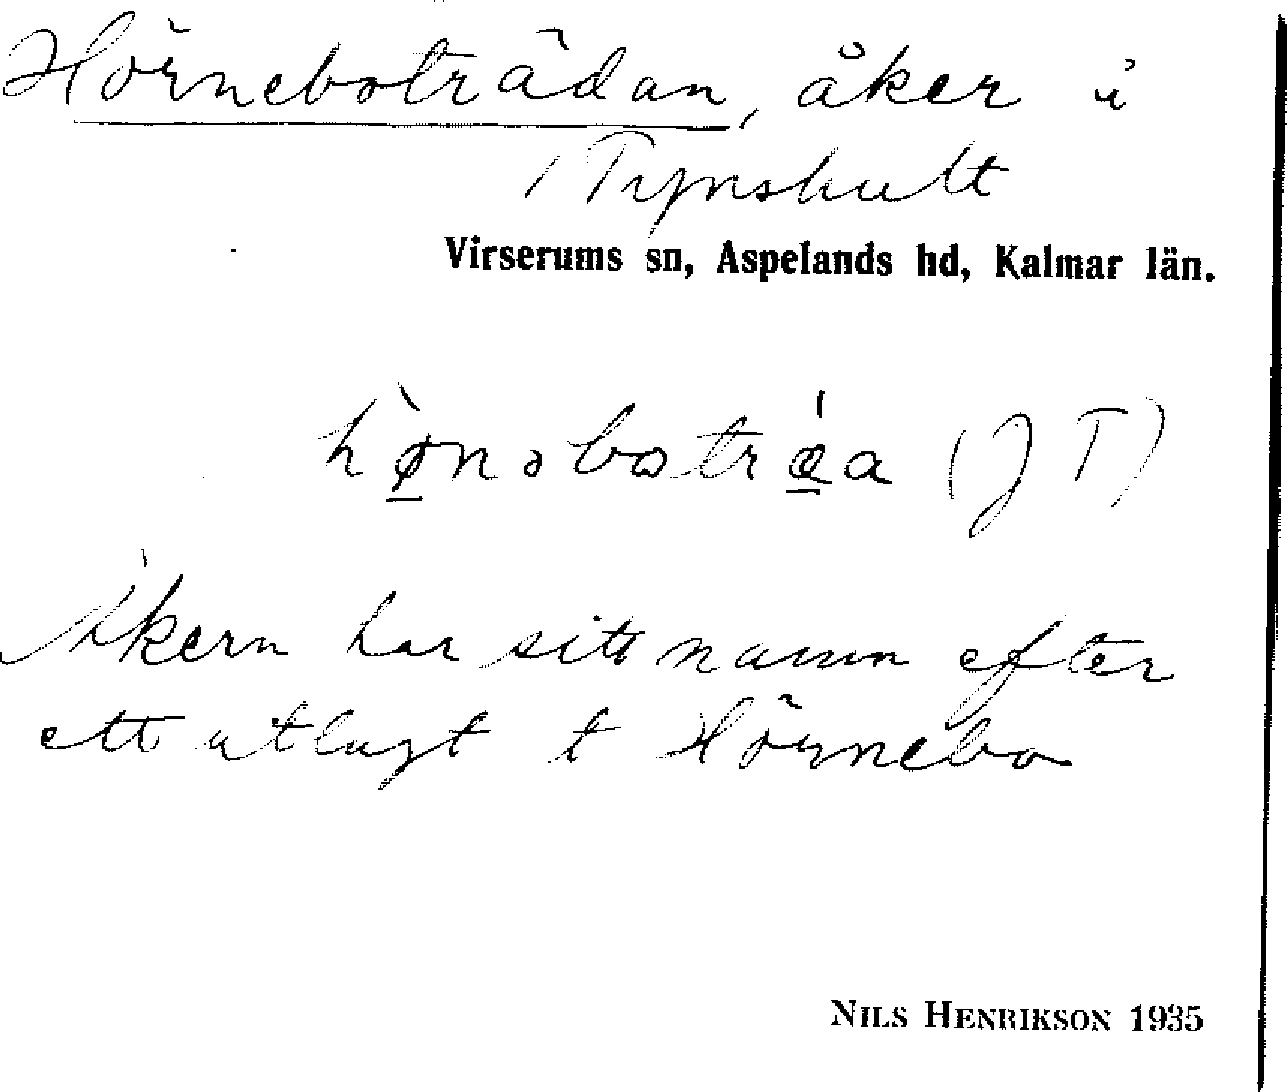 Hörneboträdan, åker i
1 Trynshult
Virserums sn, Aspelands hd, Kalmar län.
hø̀nəbotrǽa (J T)
Åkern har sitt namn efter
ett utlagt t Hörnebo
NILS HENRIKSON 1935